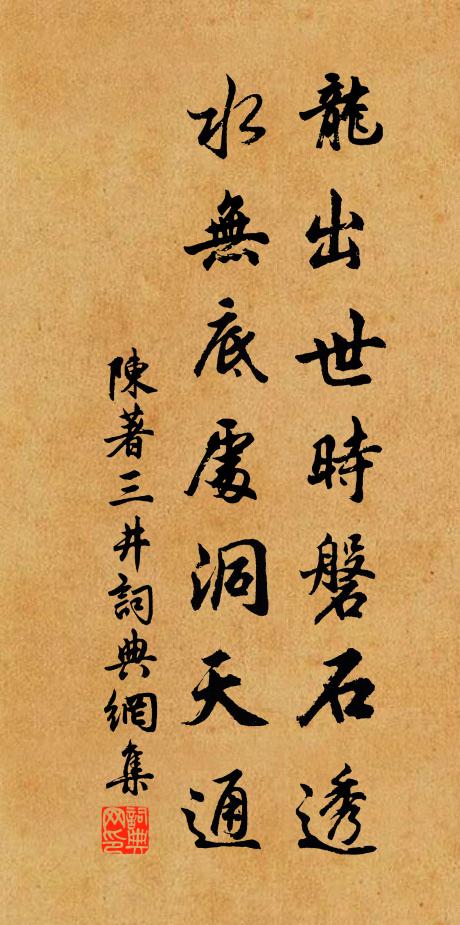 龍出世時磐石透
水無底處洞天通
陳著三井詞典網集
詞典網印